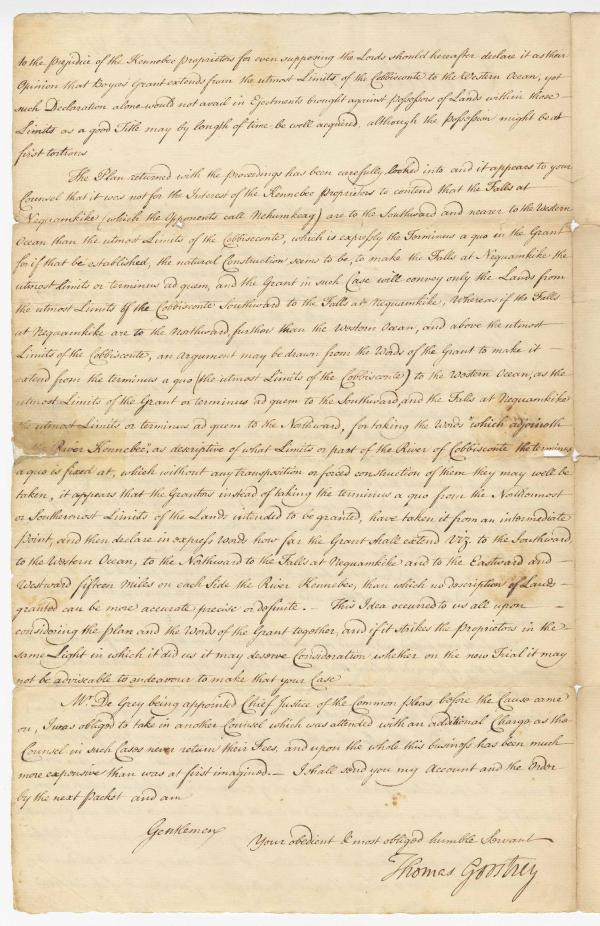 to the Prejudice of the Kennebec Proprietors for even supposing the Lords should hereafter declare it as their
Opinion that Boyes' Grant extends from the utmost Limits of the Cobbisconte to the Western Ocean, yet
such Declaration alone would not avail in Ejectments brought against Possessors of Lands within those
Limits as a good Title may by length of time be well acquired, although the Possession might be at
first tortious
The Plan returned with the Proceedings has been carefully looked into and it appears to your
Counsel that it was not for the Interest of the Kennebec Proprietors to contend that the Falls at
Nequamkike (which the Opponents call Nehumkeag) are to the Southward and nearer to the Western
Ocean than the utmost Limits of the Cobbiseconte, which is expressly the Terminus a quo in the Grant
for if that be established, the natural Construction seems to be, to make the Falls at Nequamkike the
utmost Limits or terminus ad quem, and the Grant in such Case will convey only the Lands from
the utmost Limits of the Cobbisconte Southward to the Falls at Nequamkike, Whereas if the Falls
at Nequamkike are to the Northward further than the Western Ocean, and above the utmost
Limits of the Cobbisconte, an Argument may be drawn from the Words of the Grant to make it
extend from the terminus a quo (the utmost Limits of the Cobbisconte) to the Western Ocean, as the
utmost Limits of the Grant or terminus ad quem to the Southward, and the Falls at Nequamkike
the utmost Limits or terminus ad quem to the Northward, for taking the Words "which adjoineth
the River Kennebec", as descriptive of what Limits or part of the River of Cobbisconte the terminus
a quo is fixed at, which without any transposition or forced construction of them they may well be
taken, it appears that the Grantors instead of taking the terminus a quo from the Northernmost
or Southernmost Limits of the Lands intended to be granted, have taken it from an intermediate
Point, and then declare in express words how far the Grant shall extend Vizt. to the Southward
to the Western Ocean, to the Northward to the Falls at Nequamkike and to the Eastward and
Westward fifteen Miles on each Side the River Kennebec, than which no description of Lands
granted can be more accurate precise or definite. — This Idea occurred to us all upon
considering the Plan and the Words of the Grant together, and if it strikes the Proprietors in the
same Light in which it did us it may deserve Consideration whether on the new Trial it may
not be adviseable to endeavour to make that your Case
Mr. De Grey being appointed Chief Justice of the Common pleas before the Cause came
on, I was obliged to take in another Counsel which was attended with an additional Charge, as the
Counsel in such Cases never return their Fees, and upon the whole this business has been much
more expensive than was at first imagined. — I shall send you my Account and the Order
by the next Packet and am
Gentlemen
Your obedient & most obliged humble Servant
Thomas Goostrey